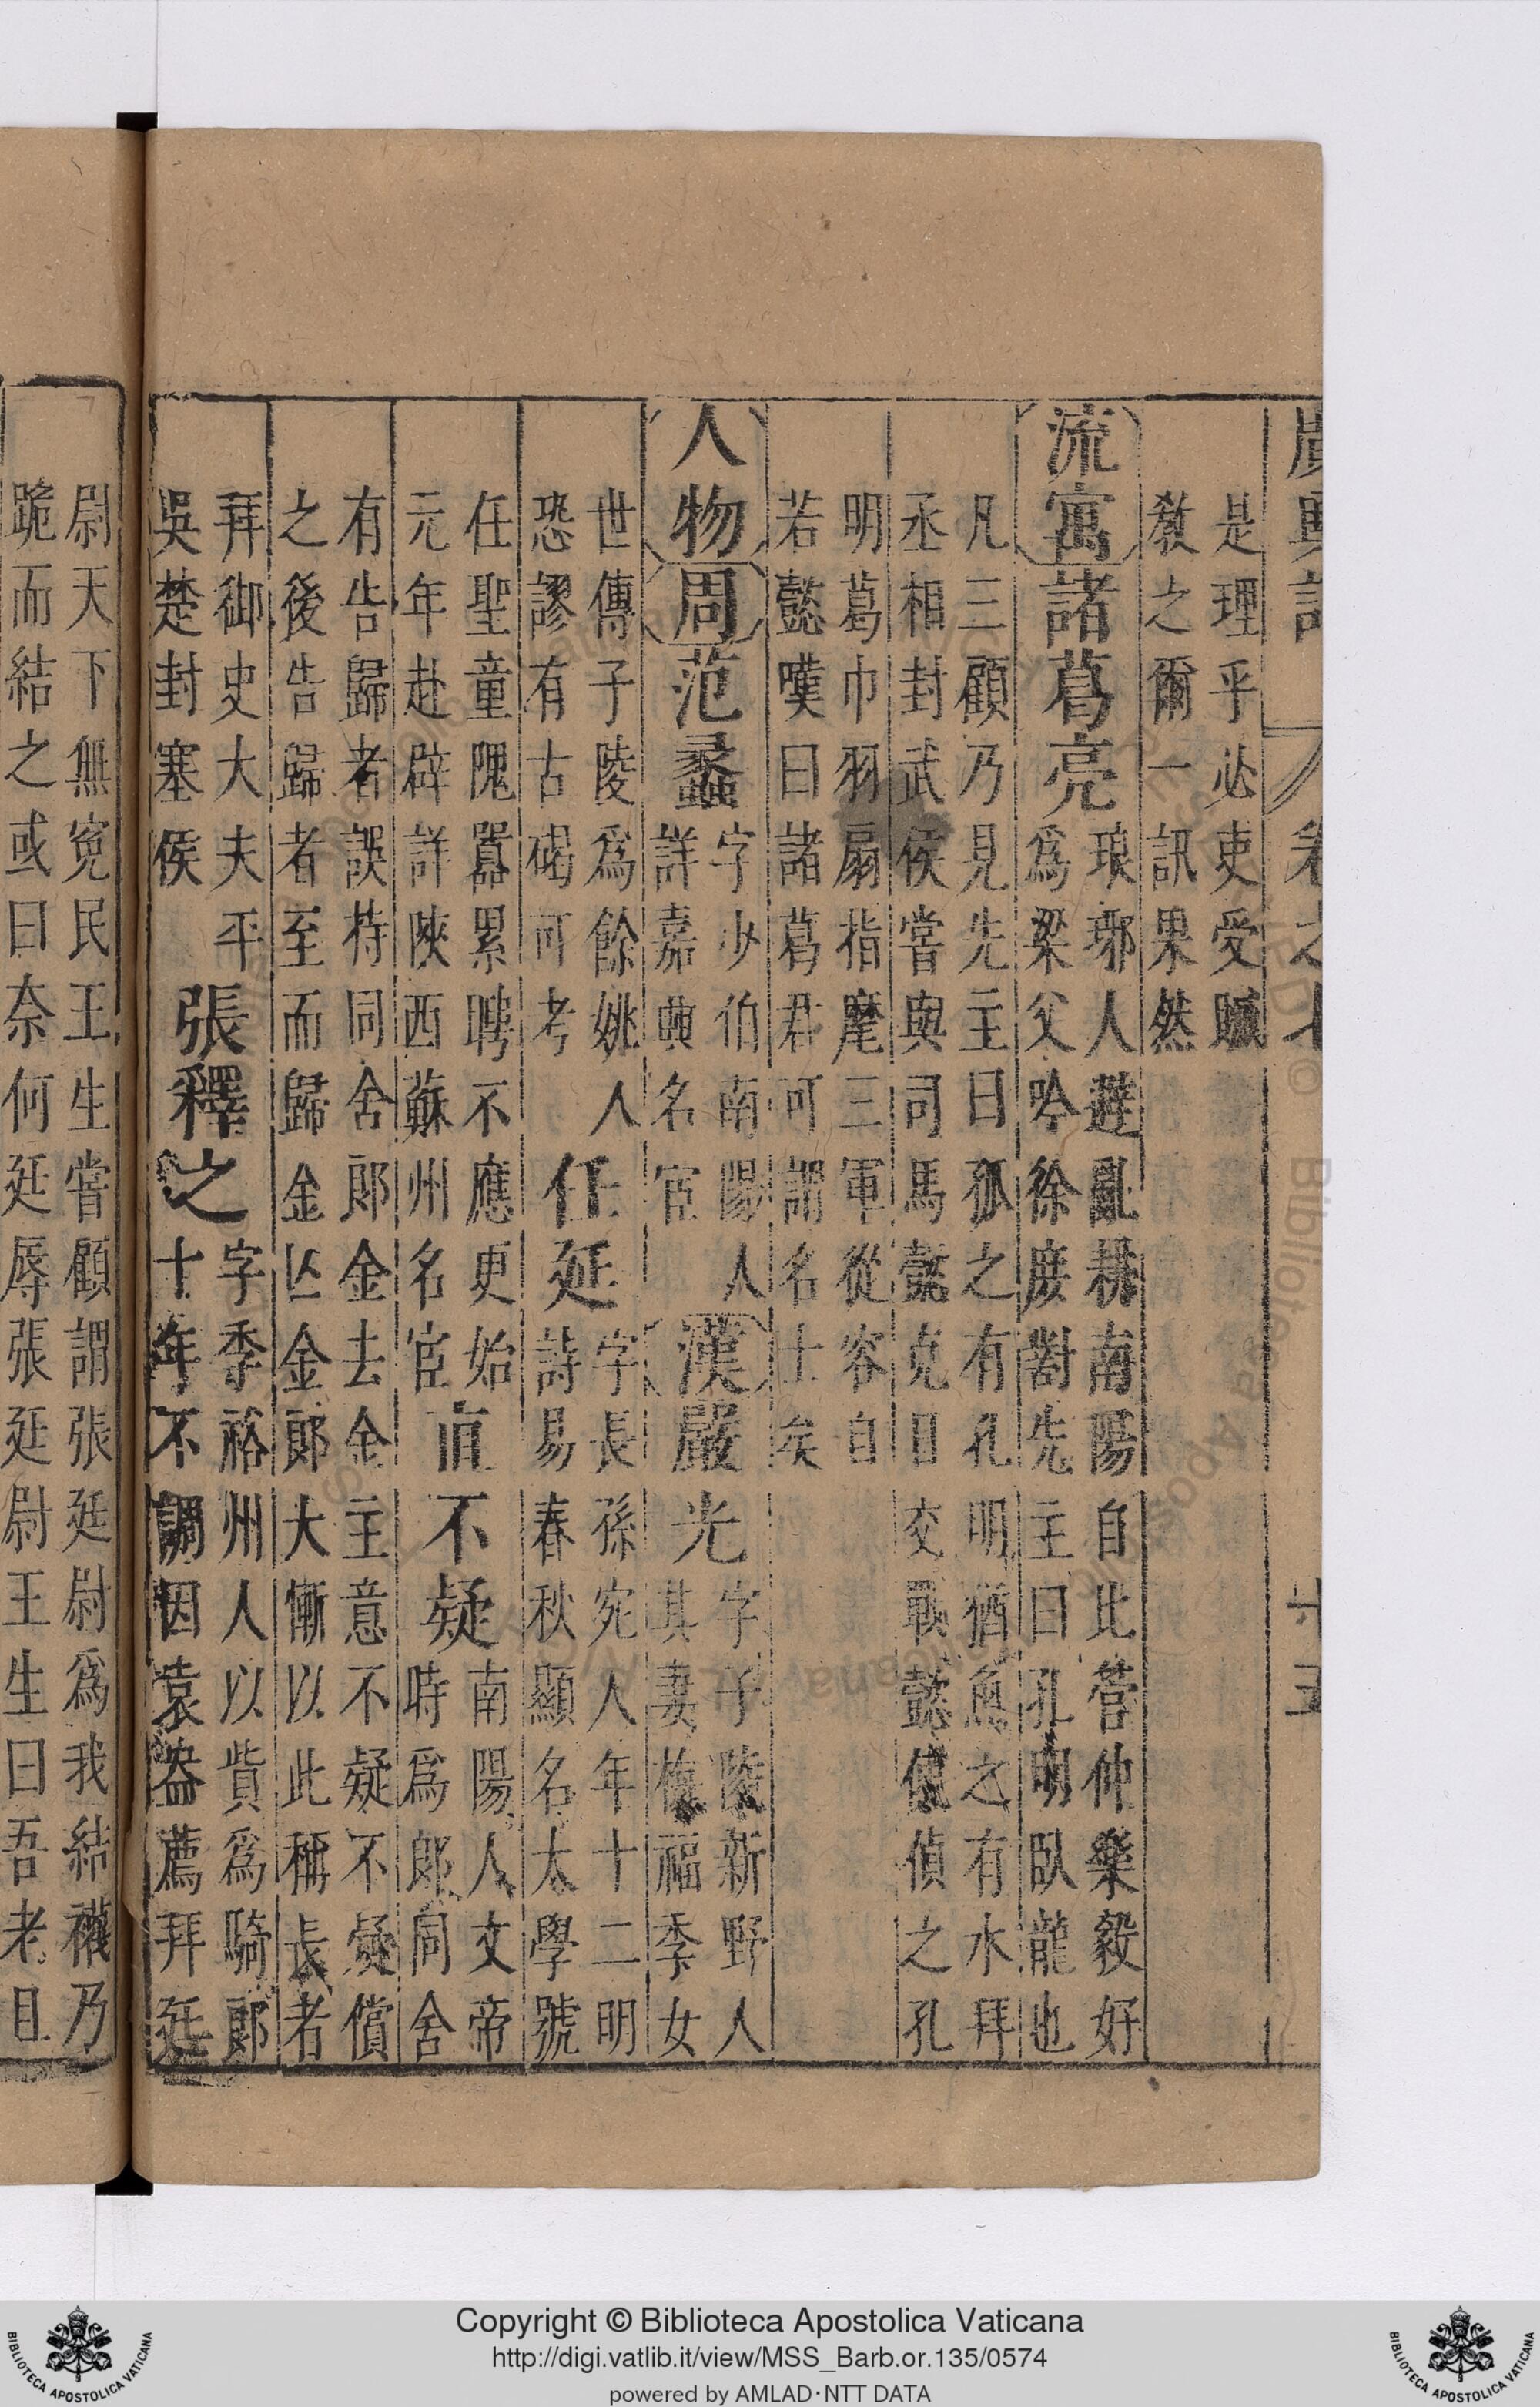 廣輿記 卷之 十五
是理乎必吏受賕
教之爾一訊果然
流寓諸葛亮
琅琊人避亂耕南陽自比管仲樂毅好
爲梁父吟徐庶謂先主曰孔明臥龍也
凡三顧乃見先主曰孤之有孔明猶魚之有水拜
丞相封武侯嘗與司馬懿克日交戰懿使偵之孔
明葛巾羽扇指麾三軍從容自
若懿嘆曰諸葛君可謂名士矣
人物周范蠡
字少伯南陽人
詳嘉興名宦
漢嚴光
字子陵新野人
其妻梅福季女
世傳子陵爲餘姚人
恐謬有古碣可考
任延
字長孫宛人年十二明
詩易春秋顯名太學號
任聖童隗囂累聘不應更始
元年赴辟詳陝西蘇州名宦
直不疑
南陽人文帝
時爲郎同舍
有告歸者誤持同舍郎金去金主意不疑不疑償
之後告歸者至而歸金亡金郎大慚以此稱長者
拜御史大夫平
吳楚封塞侯
張釋之
字季裕州人以貲爲騎郎
十年不調因袁盎薦拜廷
尉天下無冤民王生嘗顧謂張廷尉爲我結襪乃
跪而結之或曰奈何廷辱張廷尉王生曰吾老且
Copyright © Biblioteca Apostolica Vaticana
http://digi.vatlib.it/view/MSS_Barb.or.135/0574
powered by AMLAD·NTT DATA
BIBLIOTECA APOSTOLICA VATICANA
BIBLIOTECA APOSTOLICA VATICANA